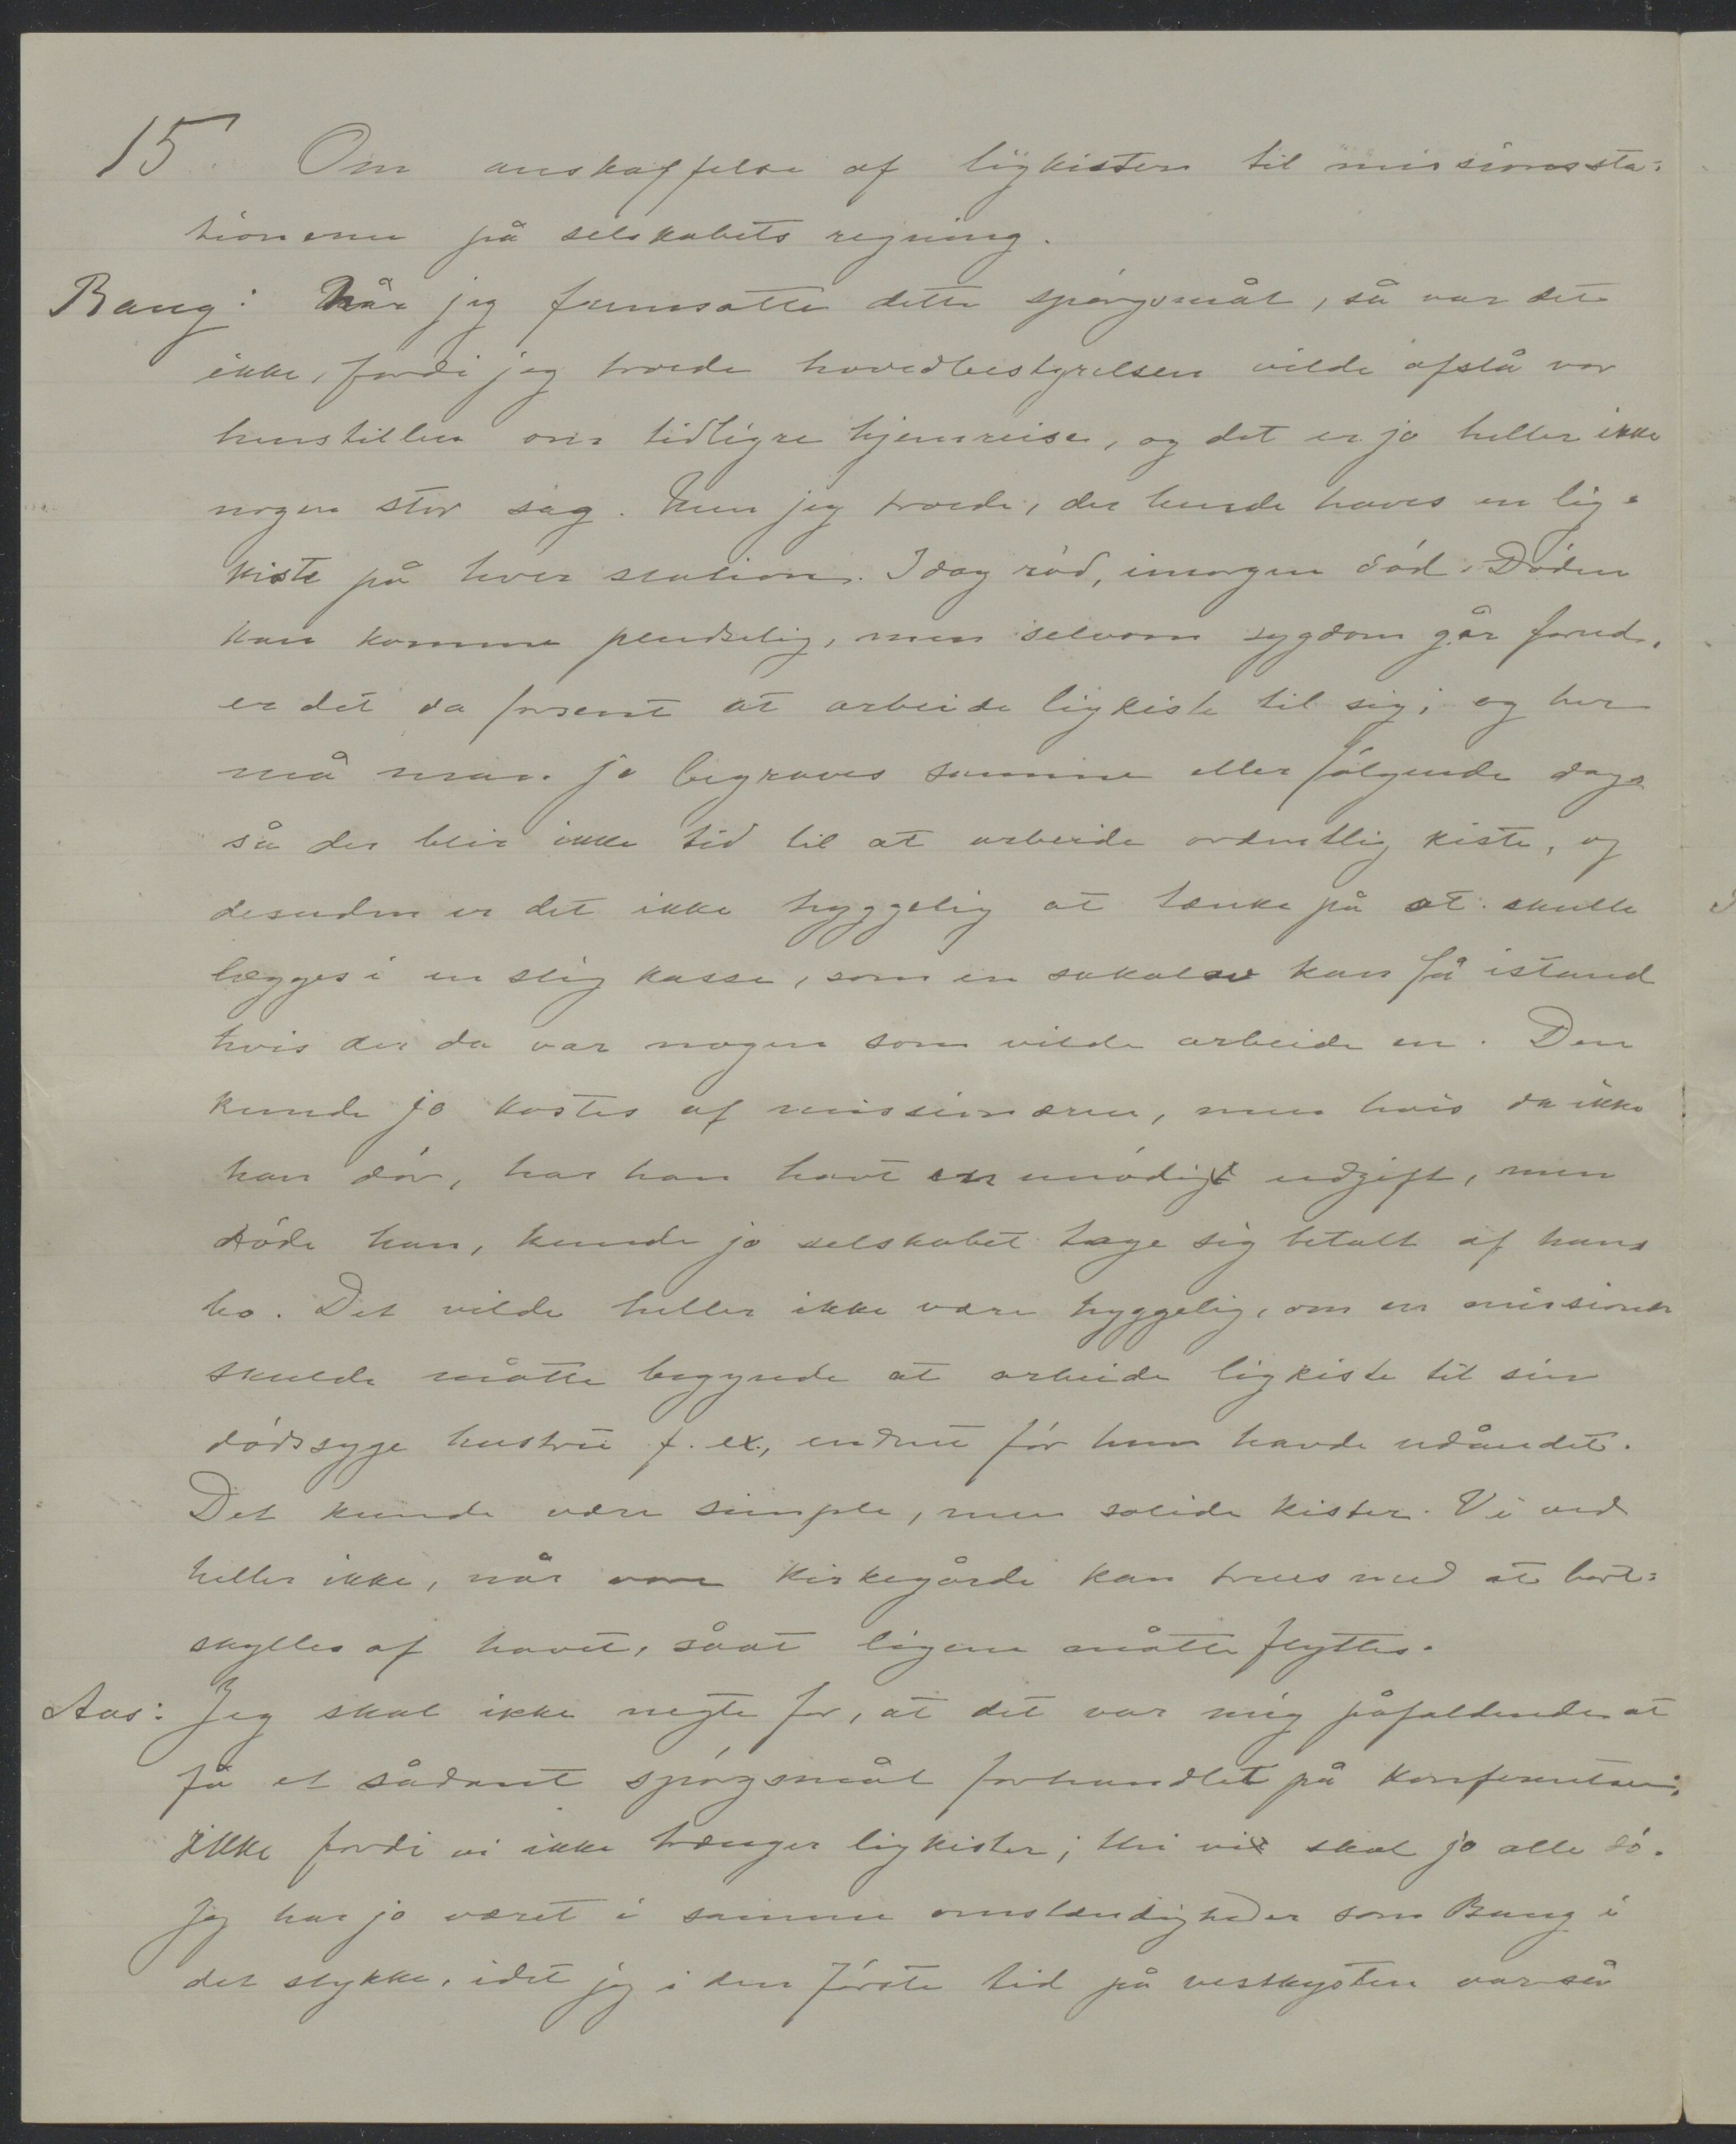 15. Om anskaffelse af ligkister til missionssta-
tionerne på selskabets regning.
Bang: Når jeg fremsatte dette spørgsmål, så var det
ikke, fordi jeg troede hovedbestyrelsen vilde afslå vor
henstillen om tidligre hjemreise, og det er jo heller ikke
nogen stor sag. Men jeg troede, der burde haves en lig-
kiste på hver station. Idag rød, imorgen død. Døden
kan komme pludselig, men selvom sygdom går forud,
er det da forsent at arbeide ligkiste til sig; og her
må man jo begraves samme eller følgende dag
så der blir ikke tid til at arbeide ordentlig kiste, og
desuden er det ikke hyggelig at tænke på at skulle
lægges i en slig kasse, som en sakalav kan få istand
hvis der da var nogen som vilde arbeide en. Den
kunde jo kostes af missionæren, men hvis da ikke
han dør, har han havt en unødig udgift, men
døde han, kunde jo selskabet tage sig betalt af hans
bo. Det vilde heller ikke være hyggelig, om en missionær
skulde måtte begynde at arbeide ligkiste til sin
dødssyge hustru f. ex., endnu før hun havde udåndet.
Det kunde være simple, men solide kister. Vi ved
heller ikke, når vore kirkegårde kan trues med at bort-
skylles af havet, såat ligene måtte flyttes.
Aas: Jeg skal ikke negte for, at det var mig påfaldende at
få et sådant spørgsmål forhandlet på konferentsen;
ikke fordi vi ikke trænger ligkister; thi vi skal jo alle dø.
Jeg har jo været i samme omstændigheder som Bang i
det stykke, idet jeg i den første tid på vestkysten var så